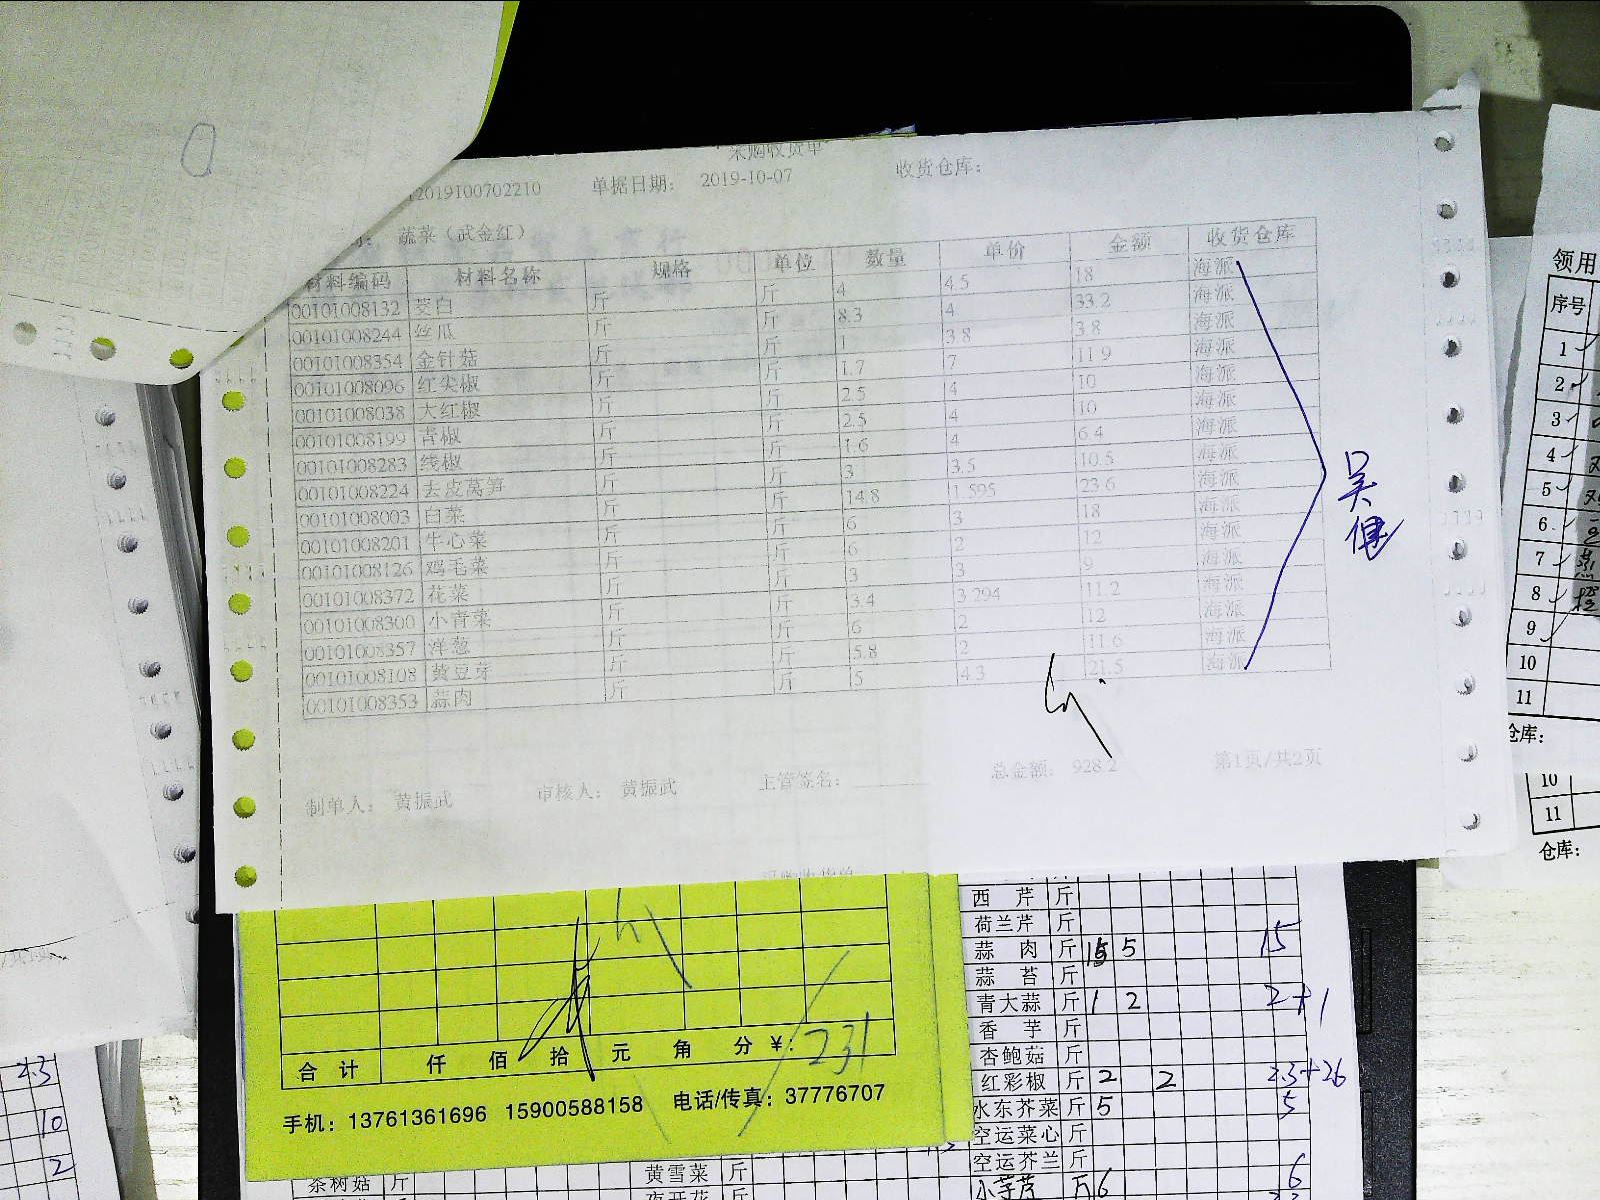 采购收货单
2019100702210 单据日期： 2019-10-07 收货仓库：
蔬菜（武金红）
材料编码 材料名称 规格 单位 数量 单价 金额 收货仓库
00101008132 茭白 斤 斤 4 4.5 18 海派
00101008244 丝瓜 斤 斤 8.3 4 33.2 海派
00101008354 金针菇 斤 斤 1 3.8 3.8 海派
00101008096 红尖椒 斤 斤 1.7 7 11.9 海派
00101008038 大红椒 斤 斤 2.5 4 10 海派
00101008199 青椒 斤 斤 2.5 4 10 海派
00101008283 线椒 斤 斤 1.6 4 6.4 海派
00101008224 去皮莴笋 斤 斤 3 3.5 10.5 海派
00101008003 白菜 斤 斤 14.8 1.595 23.6 海派
00101008201 牛心菜 斤 斤 6 3 18 海派
00101008126 鸡毛菜 斤 斤 6 2 12 海派
00101008372 花菜 斤 斤 3 3 9 海派
00101008300 小青菜 斤 斤 3.4 3.294 11.2 海派
00101008357 洋葱 斤 斤 6 2 12 海派
00101008108 黄豆芽 斤 斤 5.8 2 11.6 海派
00101008353 蒜肉 斤 斤 5 4.3 21.5 海派
吴健
制单人： 黄振武 审核人： 黄振武 主管签名： 总金额： 928.2 第1页/共2页
合计 仟 佰 拾 元 角 分 ¥： 231
手机：13761361696 15900588158 电话/传真：37776707
西芹 斤
荷兰芹 斤
蒜肉 斤 5 15
蒜苔 斤
青大蒜 斤 1 2 2+1
香芋 斤
杏鲍菇 斤
红彩椒 斤 2 2 2.3+26
水东芥菜 斤 5 5
空运菜心 斤
空运芥兰 斤
小芋艿 斤 6 6
黄雪菜 斤
茶树菇 斤
领用
序号
1
2
3
4
5
6
7
8
9
10
11
仓库：
10
11
仓库：
2.3
10
2